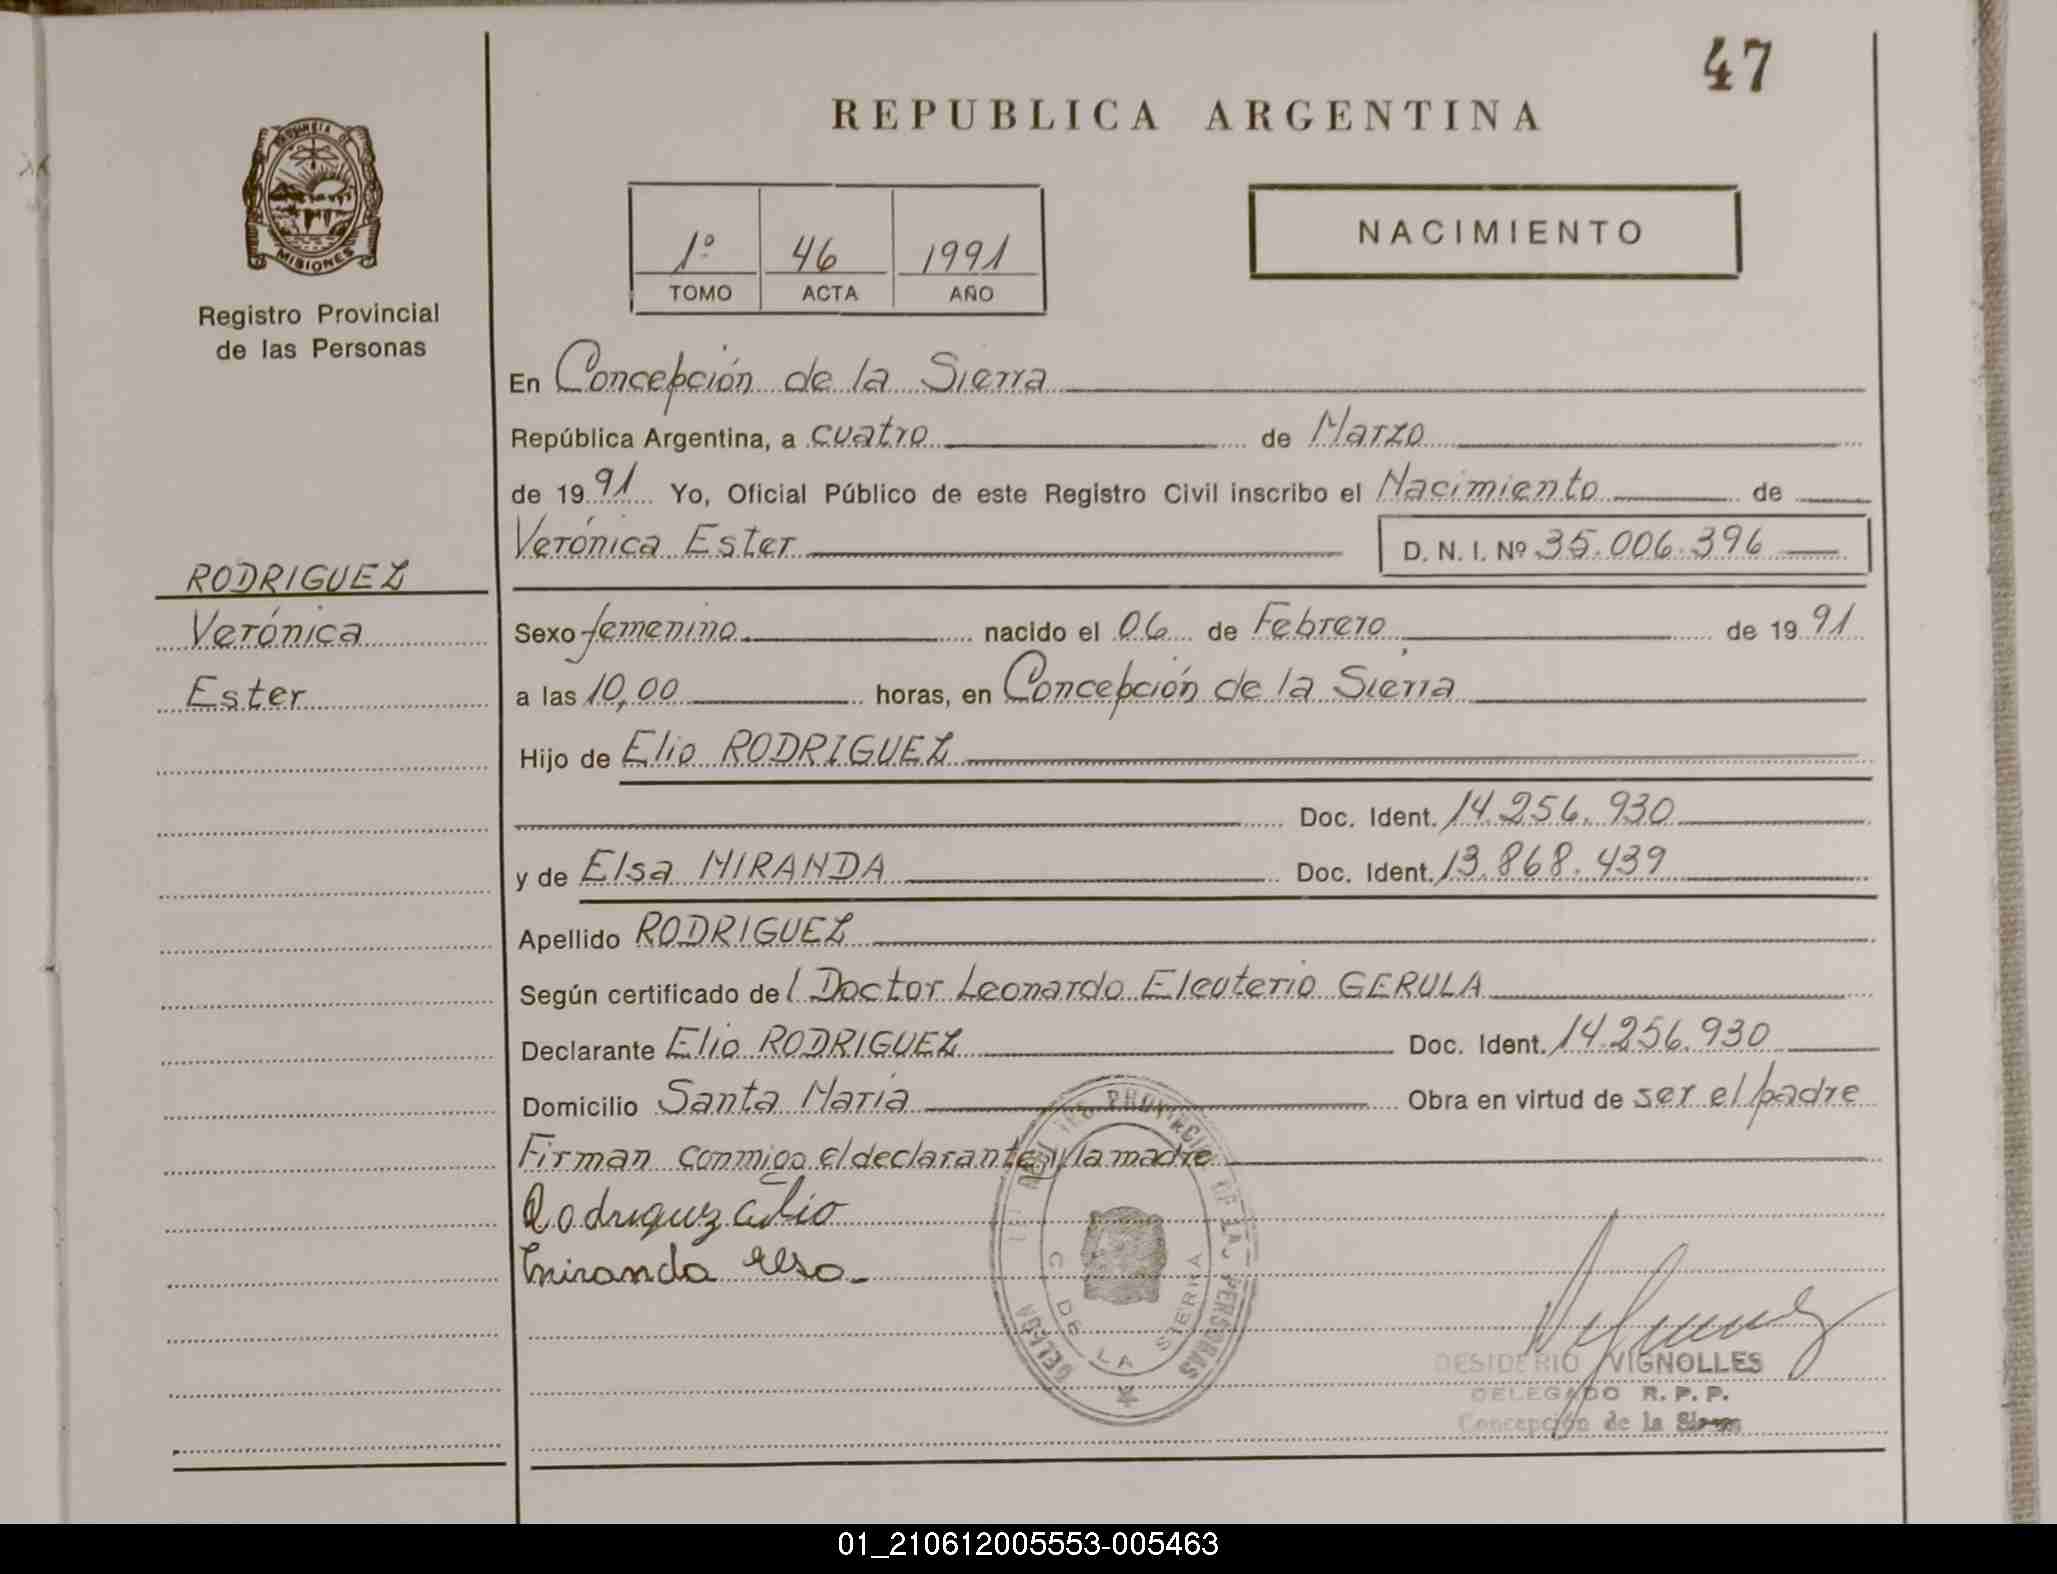 47
REPUBLICA ARGENTINA
PROVINCIA DE
MISIONES
Registro Provincial
de las Personas
1º 46 1991
TOMO ACTA AÑO
NACIMIENTO
En Concepción de la Sierra
República Argentina, a cuatro de Marzo
de 1991 Yo, Oficial Público de este Registro Civil inscribo el Nacimiento de
Verónica Ester D. N. I. Nº 35.006.396
RODRIGUEZ
Verónica
Ester
Sexo femenino nacido el 06 de Febrero de 1991
a las 10,00 horas, en Concepción de la Sierra
Hijo de Elio RODRIGUEZ
Doc. Ident. 14.256.930
y de Elsa MIRANDA Doc. Ident. 13.868.439
Apellido RODRIGUEZ
Según certificado del Doctor Leonardo Eleuterio GERULA
Declarante Elio RODRIGUEZ Doc. Ident. 14.256.930
Domicilio Santa María Obra en virtud de ser el padre
Firman conmigo el declarante y la madre
Rodriguez Elio
Miranda Elsa
PROVINCIAL DE LAS PERSONAS
C. DE LA SIERRA
DESIDERIO VIGNOLLES
DELEGADO R. P. P.
Concepción de la Sierra
01_210612005553-005463